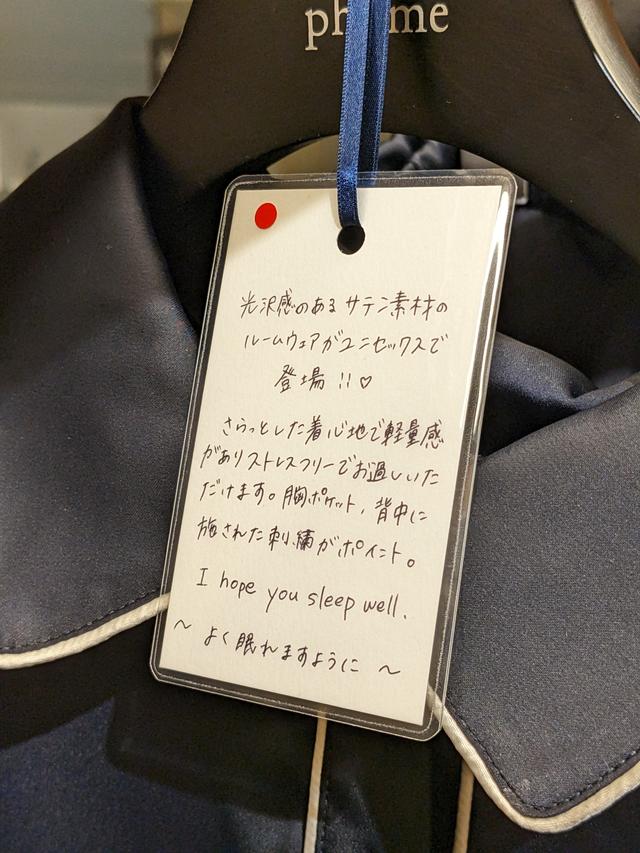 光沢感のあるサテン素材の
ルームウェアがユニセックスで
登場!!♡
さらっとした着心地で軽量感
がありストレスフリーでお過しいた
だけます。胸ポケット、背中に
施された刺繍がポイント。
I hope you sleep well.
～よく眠れますように～